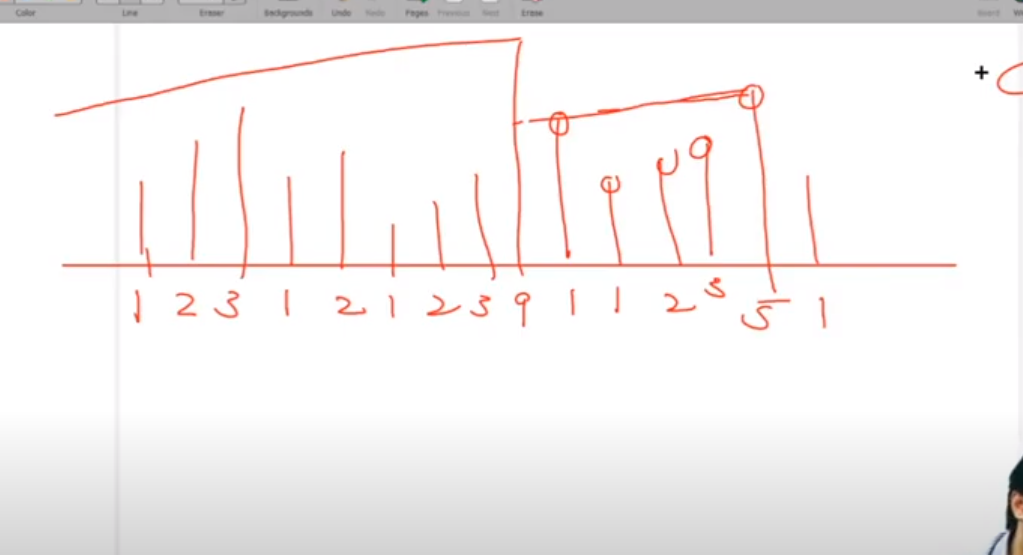 Color Line Eraser Backgrounds Undo Redo Pages Previous Next Erase Board
1 2 3 1 2 1 2 3 9 1 1 2 3 5 1